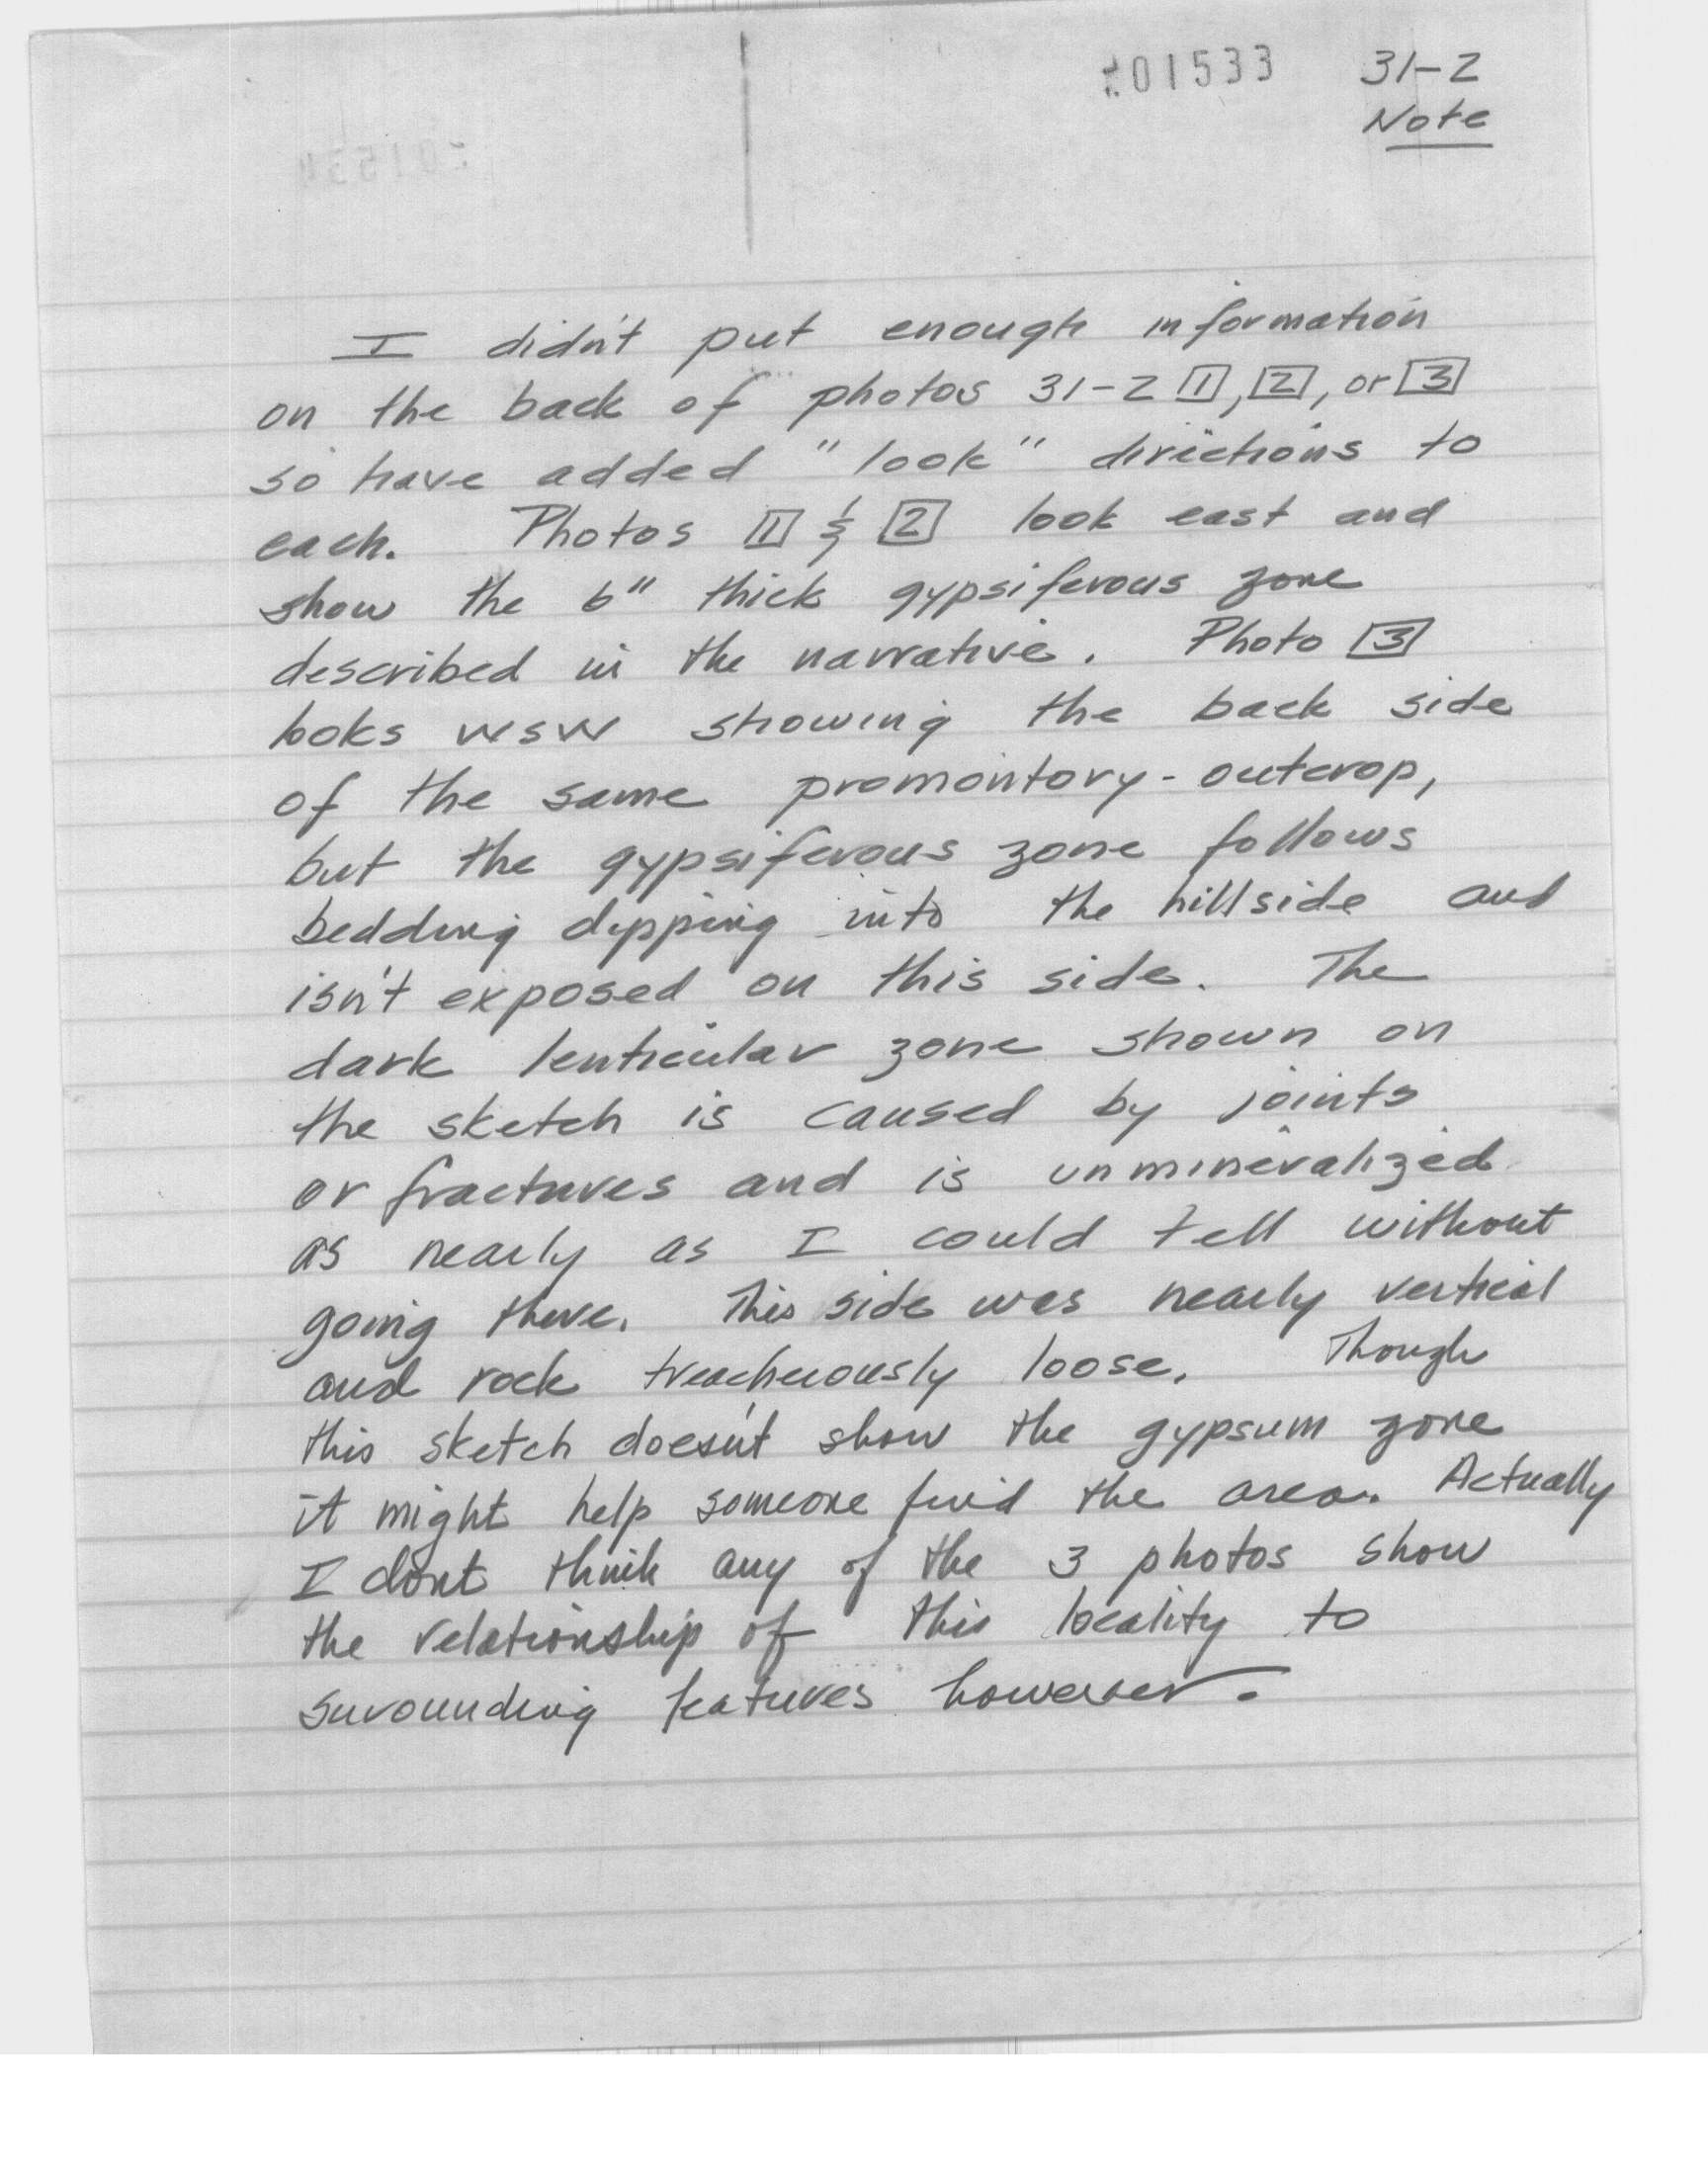 01533 31-2
Note
I didn't put enough information
on the back of photos 31-2 1, 2, or 3
so have added "look" directions to
each. Photos 1 & 2 look east and
show the 6" thick gypsiferous zone
described in the narrative. Photo 3
looks WSW showing the back side
of the same promontory-outcrop,
but the gypsiferous zone follows
bedding dipping into the hillside and
isn't exposed on this side. The
dark lenticular zone shown on
the sketch is caused by joints
or fractures and is unmineralized
as nearly as I could tell without
going there. This side was nearly vertical
and rock treacherously loose. Though
this sketch doesn't show the gypsum zone
it might help someone find the area. Actually
I don't think any of the 3 photos show
the relationship of this locality to
surounding features however.